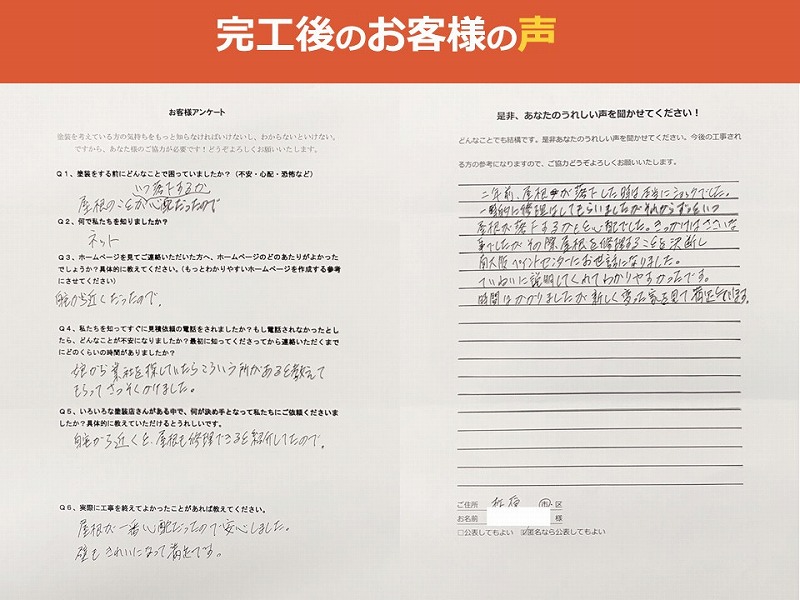 完工後のお客様の声
お客様アンケート
塗装を考えている方の気持ちをもっと知らなければいけないし、わからないといけない。
ですから、あなた様のご協力が必要です！どうぞよろしくお願いいたします。
Q１、塗装をする前にどんなことで困っていましたか？（不安・心配・恐怖など）
いつ落下するか
屋根のことが心配だったので
Q２、何で私たちを知りましたか？
ネット
Q３、ホームページを見てご連絡いただいた方へ、ホームページのどのあたりがよかっ
たでしょうか？具体的に教えてください。（もっとわかりやすいホームページを作成する参考
にさせてください）
自宅から近くだったので。
Q４、私たちを知ってすぐに見積依頼の電話をされましたか？もし電話されなかったとし
たら、どんなことが不安になりましたか？最初に知ってくださってから連絡いただくまで
にどのくらいの時間がありましたか？
娘から業社を探していたらこういう所があると教えて
もらってさっそくかけました。
Q５、いろいろな塗装店さんがある中で、何が決め手となって私たちにご依頼くださいま
したか？具体的に教えていただけるとうれしいです。
自宅から近くを、屋根も修理できると紹介してたので。
Q６、実際に工事を終えてよかったことがあれば教えてください。
屋根が一番心配だったので安心しました。
壁もきれいになって満足です。
是非、あなたのうれしい声を聞かせてください！
どんなことでも結構です。是非あなたのうれしい声を聞かせてください。今後の工事され
る方の参考になりますので、ご協力どうぞよろしくお願いいたします。
二年前、屋根が落下した時は本当にショックでした。
一時的に修理はしてもらいましたがそれからずっといつ
屋根が落下するかもと心配でした。きっかけはささいな
事でしたがその際屋根を修理することを決断し
南大阪ペイントセンターにお世話になりました。
ていねいに説明してくれてわかりやすかったです。
時間はかかりましたが新しく変った家を見て満足しています。
ご住所 松原 市・区
お名前 様
□公表してもよい ☑匿名なら公表してもよい